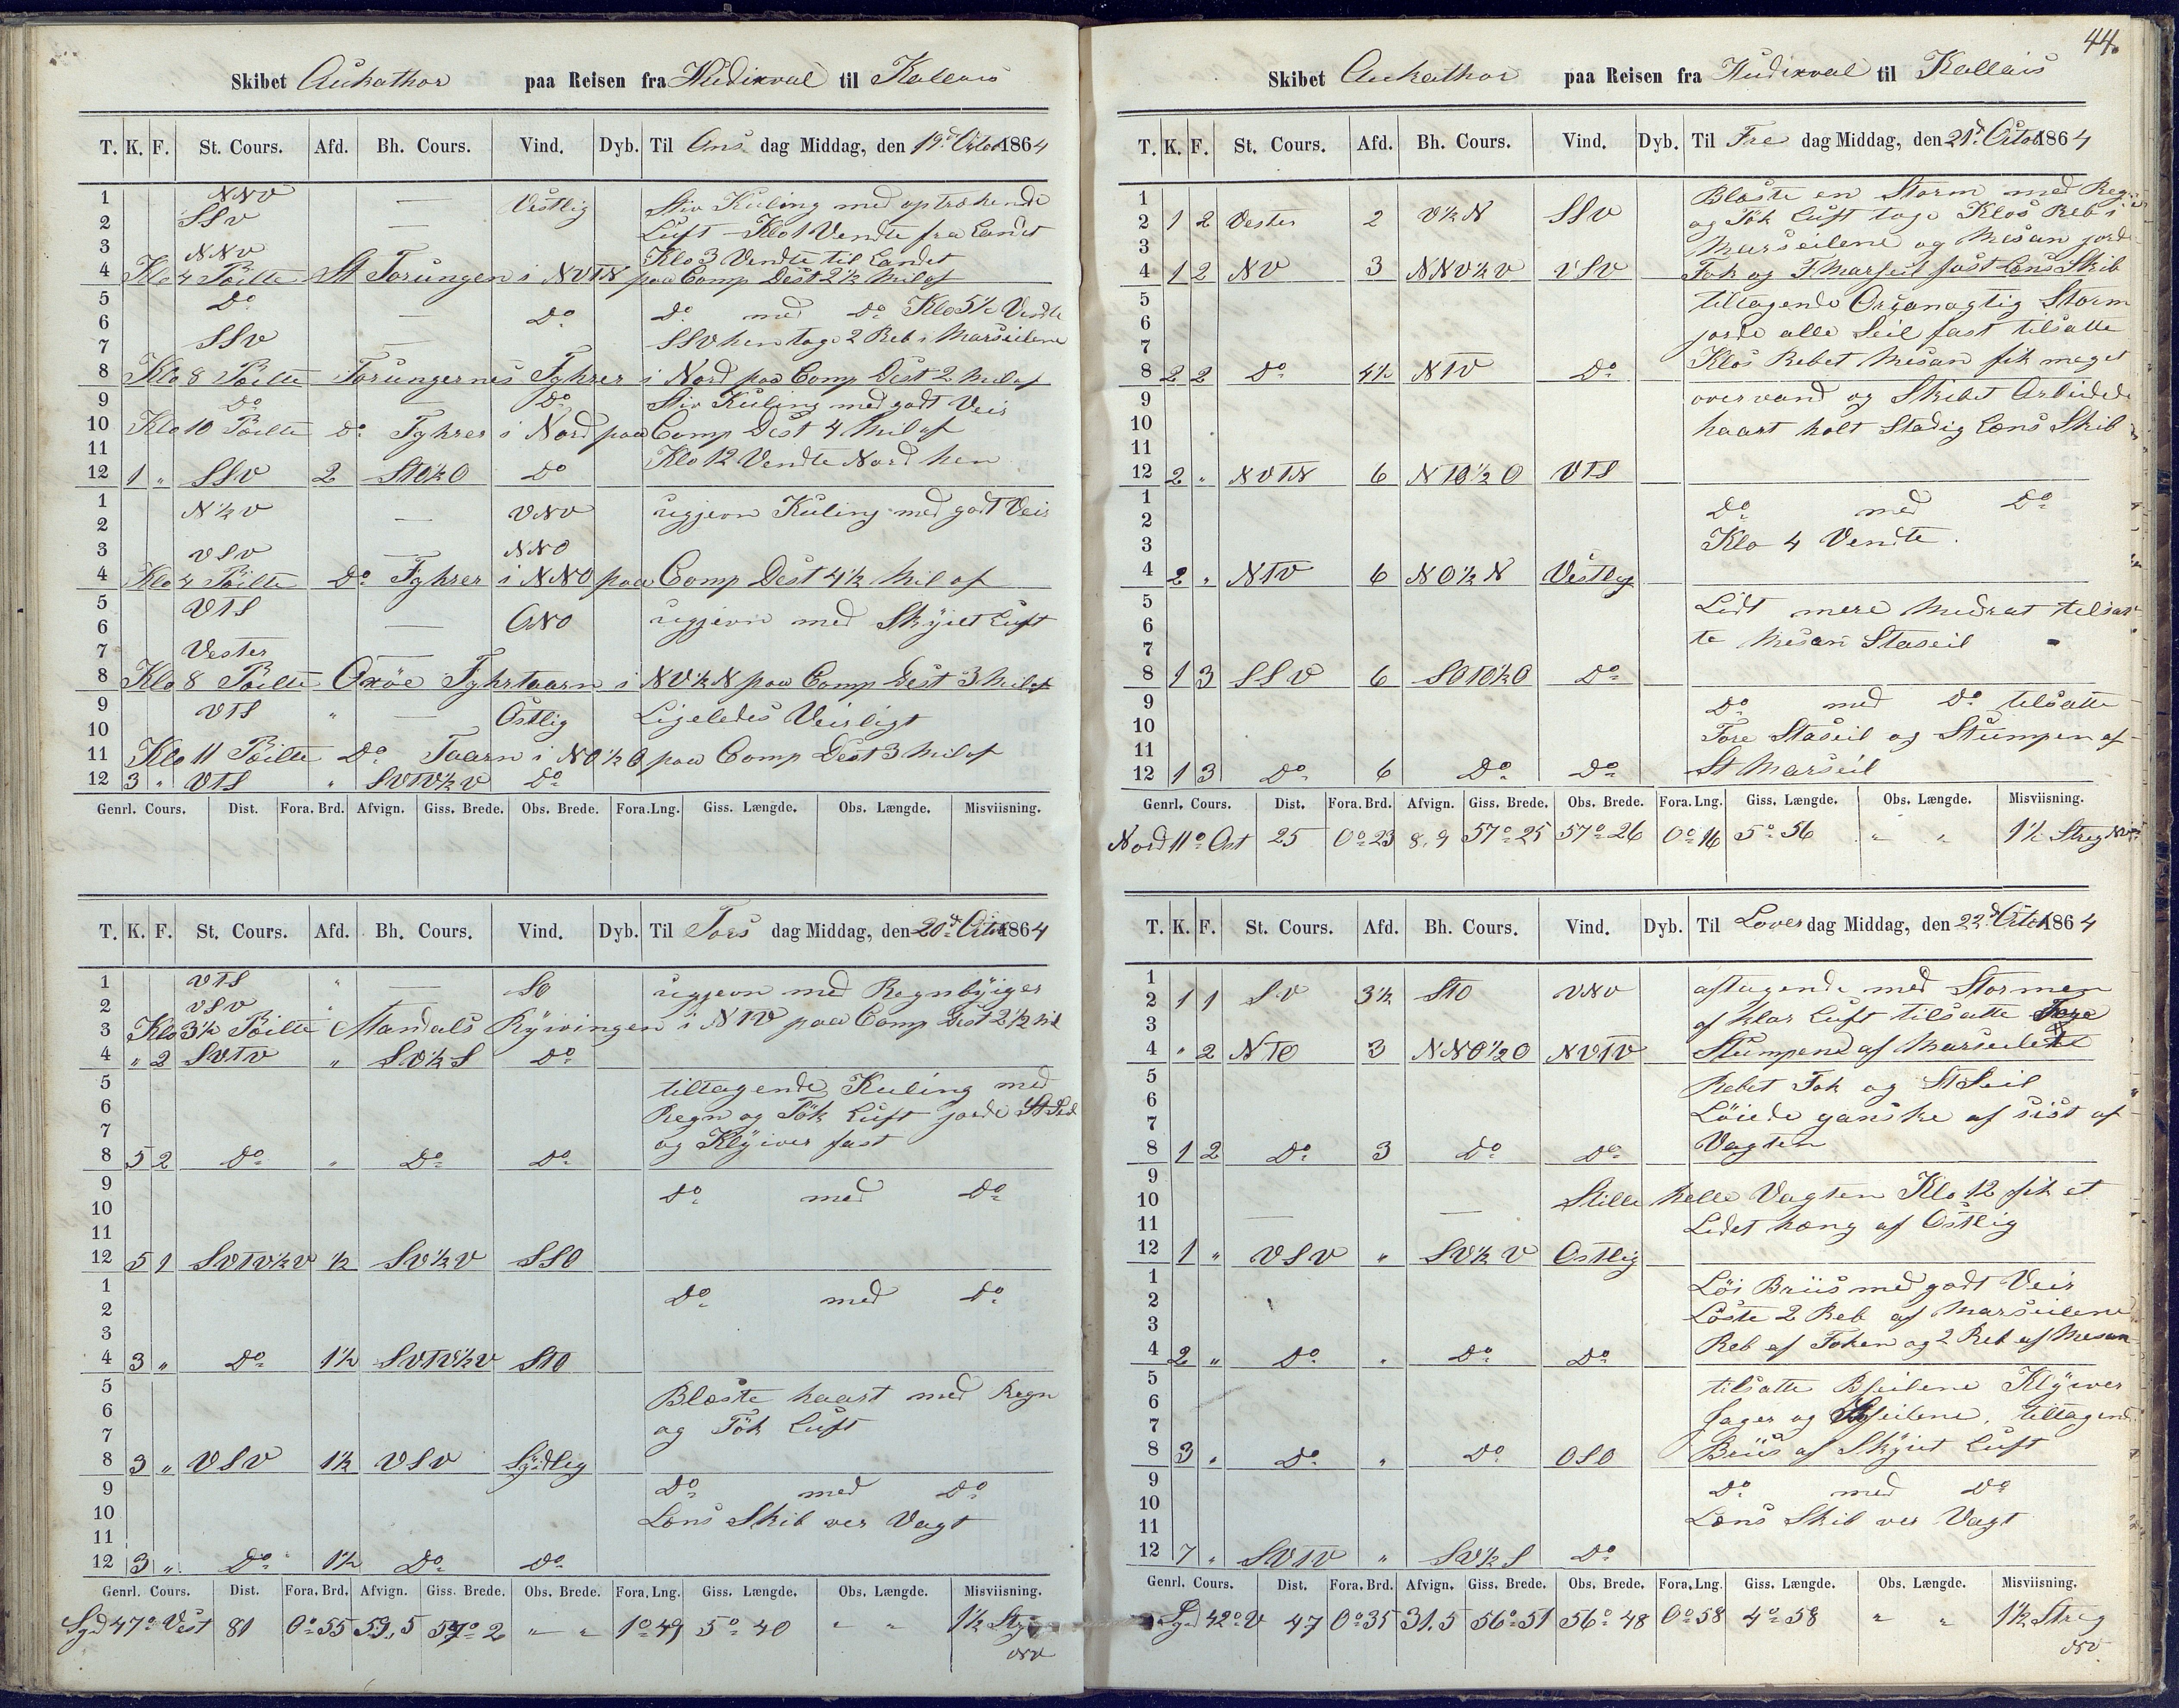 Skibet Aukathor paa Reisen fra Hudixval til Kallais
T. K. F. St. Cours. Afd. Bh. Cours. Vind. Dyb. Til Ons dag Middag, den 19d Octob 1864
1 NNV — Vestlig Stiv Kuling med optrækende
2 SSV — Luft Klo 1 Vendte fra Landet
3 NNV Klo 3 Vendte til Landet
4 Klo 4 Pöilte St Torungen i NVTN paa Comp Dist 2½ Mil af
5 Do
6 — Do Do med Do Klo 5½ Vendte
7 SSV — SSV hen tage 2 Reb i Marseilene
8 Klo 8 Pöilte Torungernes Fyhrer i Nord paa Comp Dist 2 Mil af
9 Do — Do Stiv Kuling med godt Veir
10 Klo 10 Pöilte do Fyhrer i Nord paa Comp Dist 4 Mil af
11 Klo 12 Vendte Nord hen
12 1 „ SSV 2 STO½O Do
1 N½V
2 — VNV ugjevn Kuling med godt Veir
3 VSV — NNO
4 Klo 4 Pöilte Do Fyhrer i NNO paa Comp Dest 4½ Mil af
5 VTS
6 — ONO ugjevn med Skÿiet Luft
7 Vester —
8 Klo 8 Pöilte Oxöe Fyhrtaarn i NV½N paa Comp Dest 3 Mil af
9 VTS „ — Östlig Ligeledes Veirligt
10
11 Klo 11 Pöilte Do Taarn i NO½O paa Comp Dest 3 Mil af
12 3 „ VTS „ SVTV½V Do
Genrl. Cours. Dist. Fora. Brd. Afvign. Giss. Brede. Obs. Brede. Fora. Lng. Giss. Længde. Obs. Længde. Misviisning.
T. K. F. St. Cours. Afd. Bh. Cours. Vind. Dyb. Til Tors dag Middag, den 20d Octob 1864
1 VTS „ — SO ugjevn med Regnbÿiger
2 VSV „
3 Klo 3½ Pöilte Mandals Rÿivingen i NTV paa Comp Dist 2½ Mil
4 „ 2 SVTV „ SV½S Do
5 tiltagende Kuling med
6 Regn og Tök Luft jorde St Seil
7 og Klÿiver fast
8 5 2 Do „ Do Do
9 Do med Do
10
11
12 5 1 SVTV½V ½ SV½V SSO
1 Do med Do
2
3
4 3 „ Do 1½ SVTV½V STO
5 Blæste haart med Regn
6 og Tök Luft
7
8 3 „ VSV 1½ VSV Sÿdlig
9 Do med Do
10 Læns Skib ver Vagt
11
12 3 „ Do 1½ Do Do
Genrl. Cours. Dist. Fora. Brd. Afvign. Giss. Brede. Obs. Brede. Fora. Lng. Giss. Længde. Obs. Længde. Misviisning.
Syd 47° Vest 81 0° 55 59,5 57° 2 „ „ 1° 49 5° 40 „ „ 1½ Streg
NV
44.
Skibet Aukathor paa Reisen fra Hudixval til Kallais
T. K. F. St. Cours. Afd. Bh. Cours. Vind. Dyb. Til Fre dag Middag, den 21d Octob 1864
1 Blæste en Storm med Regn
2 1 2 Vester 2 V½N SSV og Tök Luft toge Klos Reb i
3 Marseilene og Mesan jorde
4 1 2 NV 3 NNV½V VSV Fok og F Marseil fast Læns Skib
5 tiltagende Orcanagtig Storm
6 jorde alle Seil fast tilsatte
7 Klos Rebet Mesan fik meget
8 2 2 Do 4½ NTV Do
9 over vand og Skibet Arbeidede
10 haart holt Stadig Læns Skib
11
12 2 „ NVTN 6 NTO½O VTS
1 Do med Do
2
3 Klo 4 Vendte
4 2 „ NTV 6 NO½N Vestlig
5 Lidt mere Modrat tilsat-
6
7 te Mesan Staseil
8 1 3 SSV 6 SOTO½O Do
9 Do med Do tilsatte
10 Fore Staseil og Stumpen af
11
12 1 3 Do 6 Do Do St Marseil
Genrl. Cours. Dist. Fora. Brd. Afvign. Giss. Brede. Obs. Brede. Fora. Lng. Giss. Længde. Obs. Længde. Misviisning.
Nord 11° Ost 25 0° 23 8,9 57° 25 57° 26 0° 16 5° 56 „ „ 1½ Streg
T. K. F. St. Cours. Afd. Bh. Cours. Vind. Dyb. Til Lover dag Middag, den 22d Octob 1864
1 aftagende med Stormen
2 1 1 SV 3½ STO VNV af klar Luft tilsatte
3
4 „ 2 NTO 3 NNO½O NVTV Stumpene af Marseilene
5 Rebet Fok og St Seil
6 Löiede ganske af sist af
7
8 1 2 Do 3 Do Do Vagten
9
10 — — Stille helle Vagten Klo 12 fik et
11 Lidet hæng af Östlig
12 1 „ VSV „ SV½V Ostlig
1 Löi Briis med godt Veir
2 Löste 2 Reb af Marseilene
3
4 2 „ Do „ Do Do Reb af Foken og 2 Reb af Mesan
5 tilsatte Bseilene Klÿver
6 Jager og seilene. tiltagende
7
8 3 „ Do „ Do OSO Briis af Skÿiet Luft
9 Do med Do
10 Læns Skib ver Vagt
11
12 7 „ SVTV „ SV½S Do
Genrl. Cours. Dist. Fora. Brd. Afvign. Giss. Brede. Obs. Brede. Fora. Lng. Giss. Længde. Obs. Længde. Misviisning.
Syd 42° V 47 0° 35 31,5 56° 51 56° 48 0° 58 4° 58 „ „ 1½ Streg
NV.